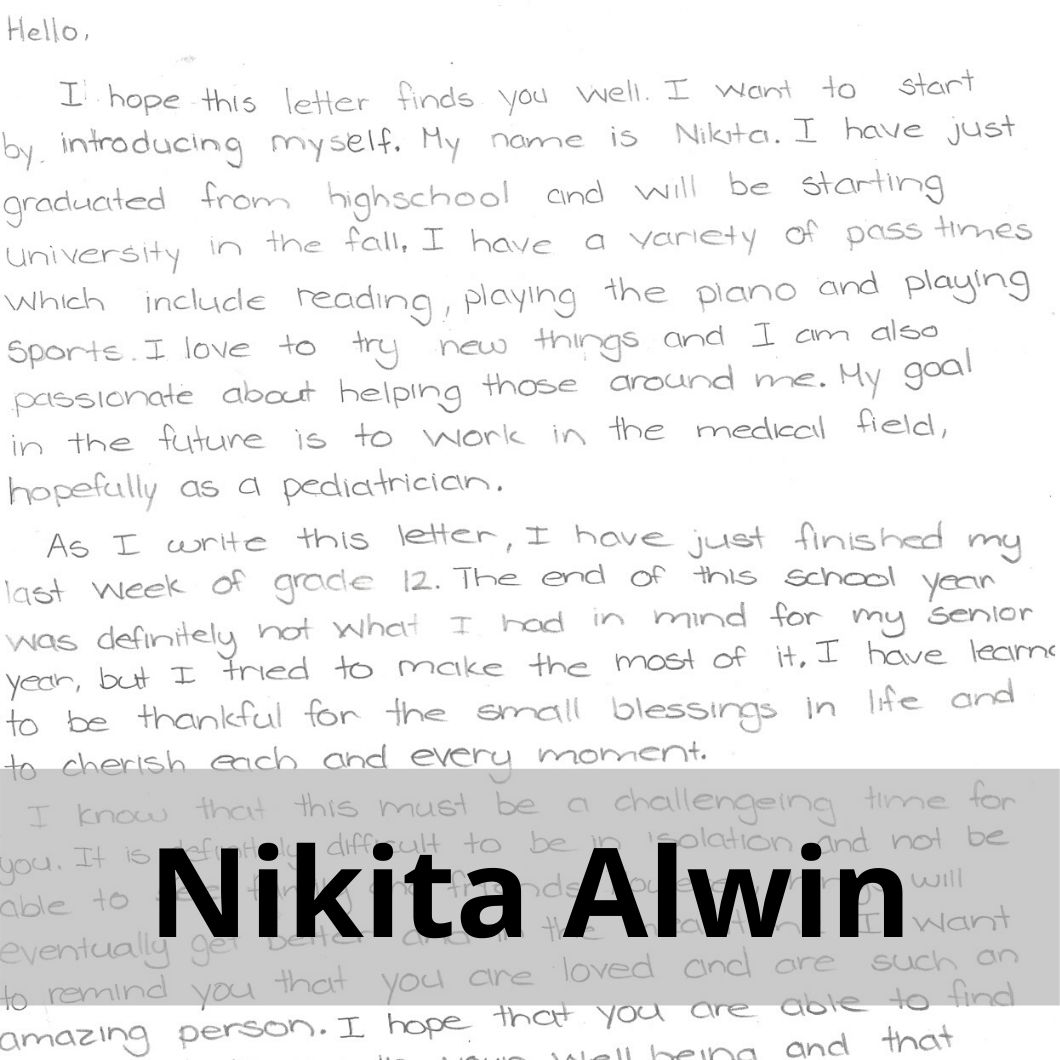 Hello,
I hope this letter finds you well. I want to start
by introducing myself. My name is Nikita. I have just
graduated from highschool and will be starting
university in the fall. I have a variety of pass times
which include reading, playing the piano and playing
sports. I love to try new things and I am also
passionate about helping those around me. My goal
in the future is to work in the medical field,
hopefully as a pediatrician.
As I write this letter, I have just finished my
last week of grade 12. The end of this school year
was definitely not what I had in mind for my senior
year, but I tried to make the most of it. I have learne
to be thankful for the small blessings in life and
to cherish each and every moment.
I know that this must be a challengeing time for
you. It is definitely difficult to be in isolation and not be
able to will
Nikita Alwin
eventually get better and in the I want
to remind you that you are loved and are such an
amazing person. I hope that you are able to find
well being and that